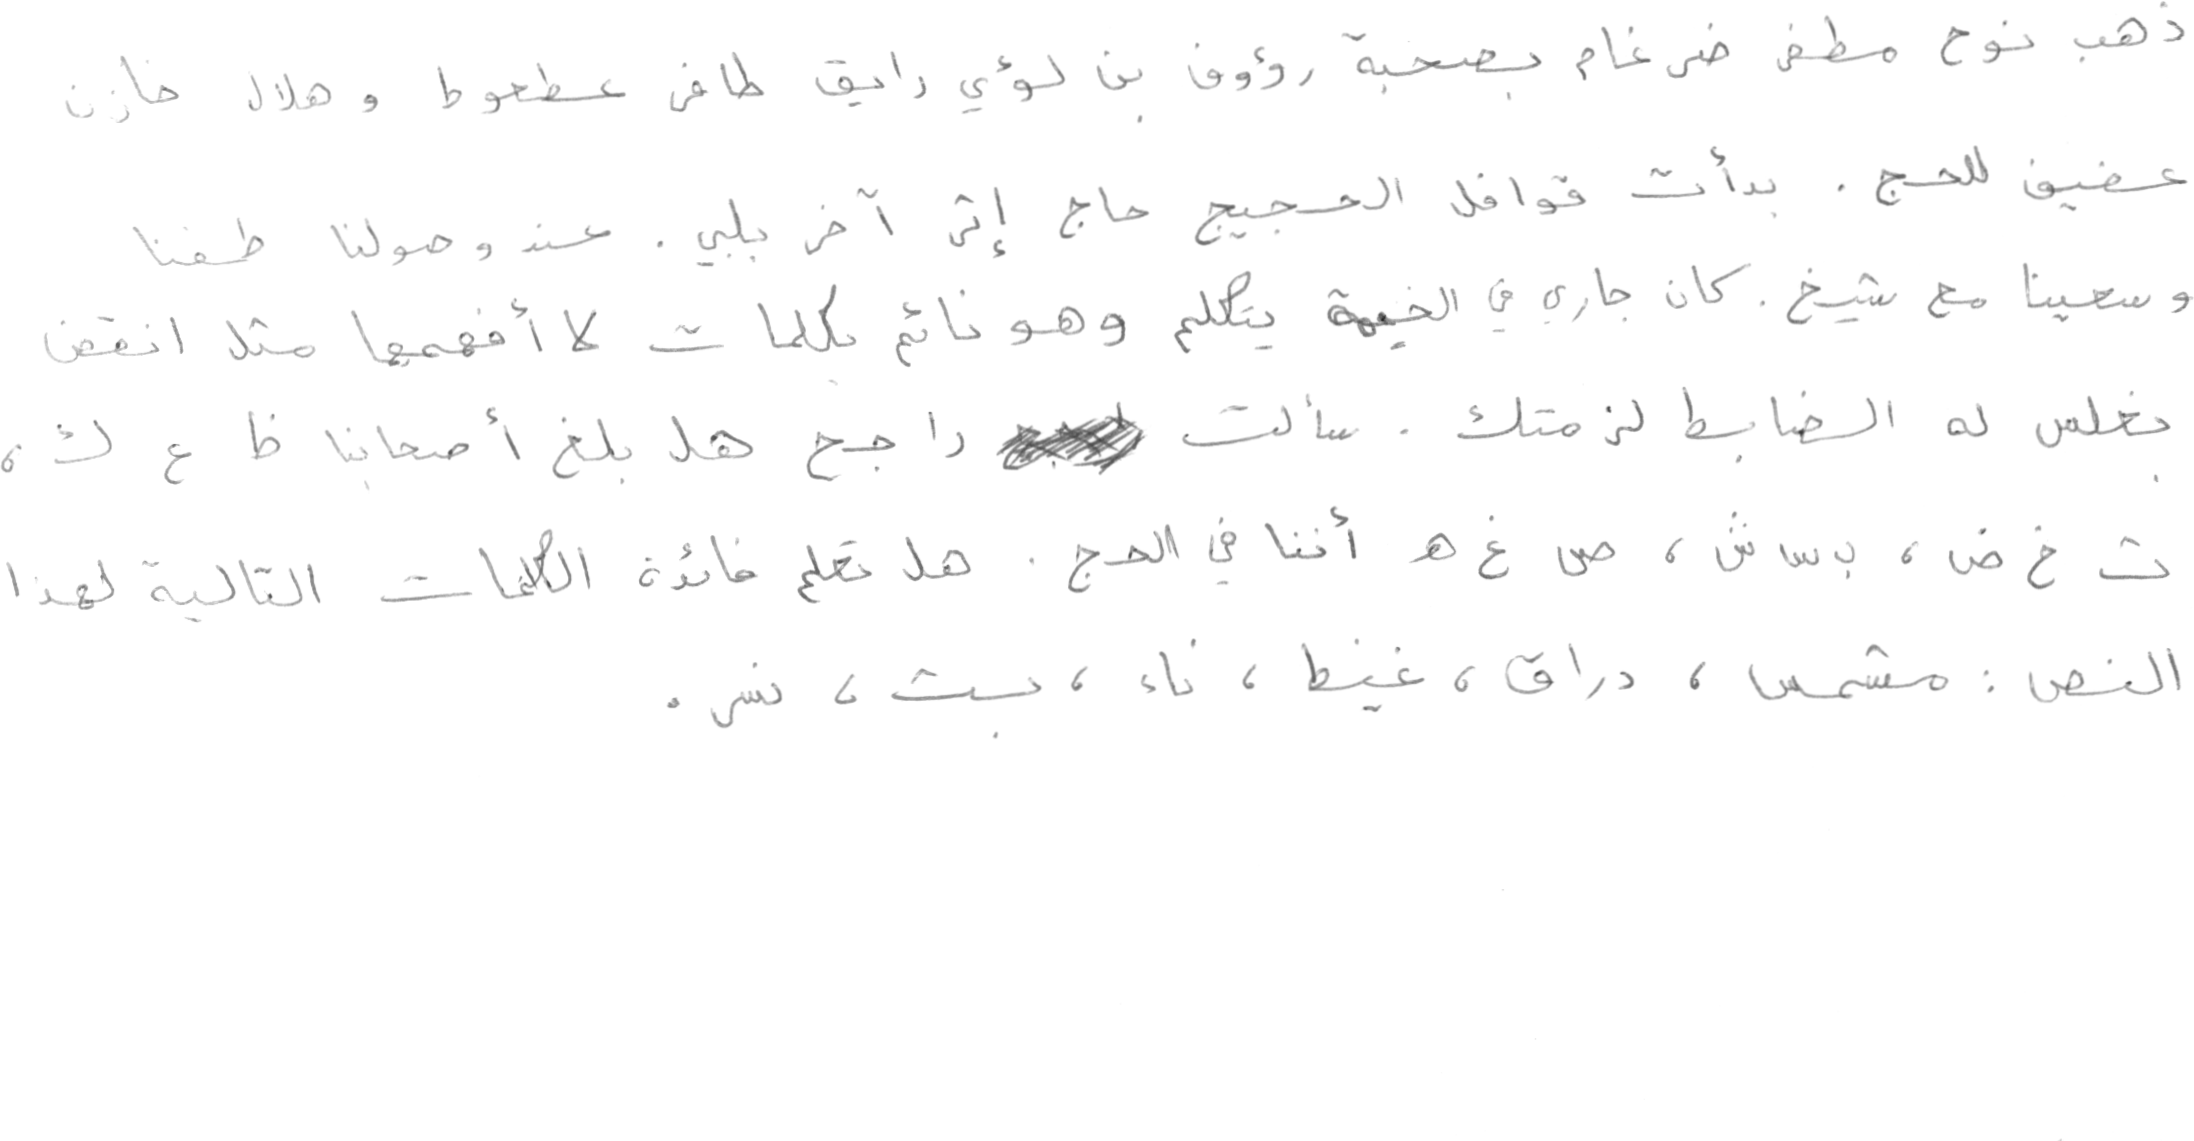 ذهب نوح مظفر ضرغام بصحبة رؤوف بن لؤي رايق ظافر عطعوط و هلال خازن
عفيف للحج . بدأت قوافل الحجيج حاج إثر آخر يلبي . عند وصولنا طفنا
وسعينا مع شيخ . كان جاري في الخيمة يتكلم وهو نائم بكلمات لا أفهمها مثل انقض
بغلس له الضابط لزمتك . سألت راجح هل بلغ أصحابنا ظ ع ك ،
ث خ ض ، ب س ش ، ص غ ه أننا في الحج . هل تعلم فائدة الكلمات التالية لهذا
النص : مشمس ، دراق ، غيظ ، ناء ، بست ، نسر .